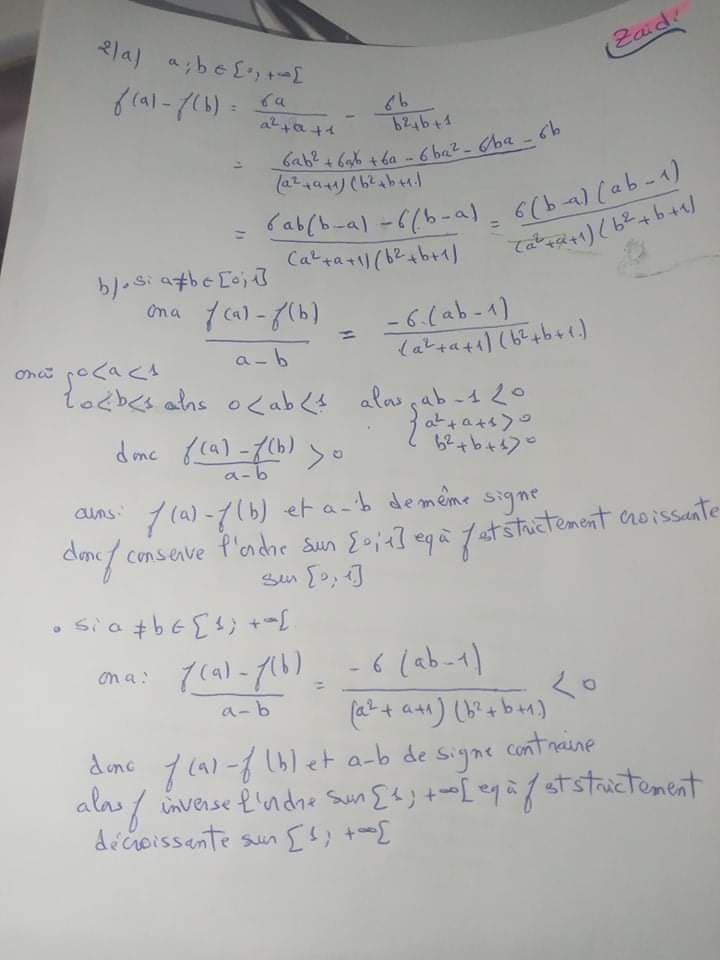 Zaidi
2/a) a;b ∈ [0; +∞[
f(a) - f(b) = 6a/(a²+a+1) - 6b/(b²+b+1)
= (6ab² + 6ab + 6a - 6ba² - 6ba - 6b)/((a²+a+1)(b²+b+1))
= (6ab(b-a) - 6(b-a))/((a²+a+1)(b²+b+1)) = (6(b-a)(ab-1))/((a²+a+1)(b²+b+1)
b). si a≠b ∈ [0;1]
ona (f(a) - f(b))/(a-b) = (-6.(ab-1))/((a²+a+1)(b²+b+1))
ona { 0<a<1
0<b<1 alors 0<ab<1 alors { ab-1<0
a²+a+1>0
b²+b+1>0
donc (f(a)-f(b))/(a-b) > 0
ainsi f(a)-f(b) et a-b de même signe
donc f conserve l'ordre sur [0;1] eq à f est strictement croissante
sur [0,1]
• si a ≠ b ∈ [1; +∞[
ona: (f(a) - f(b))/(a-b) = (-6(ab-1))/((a²+a+1)(b²+b+1)) < 0
donc f(a)-f(b) et a-b de signe contraire
alors f inverse l'ordre sur [1; +∞[ eq à f est strictement
décroissante sur [1; +∞[